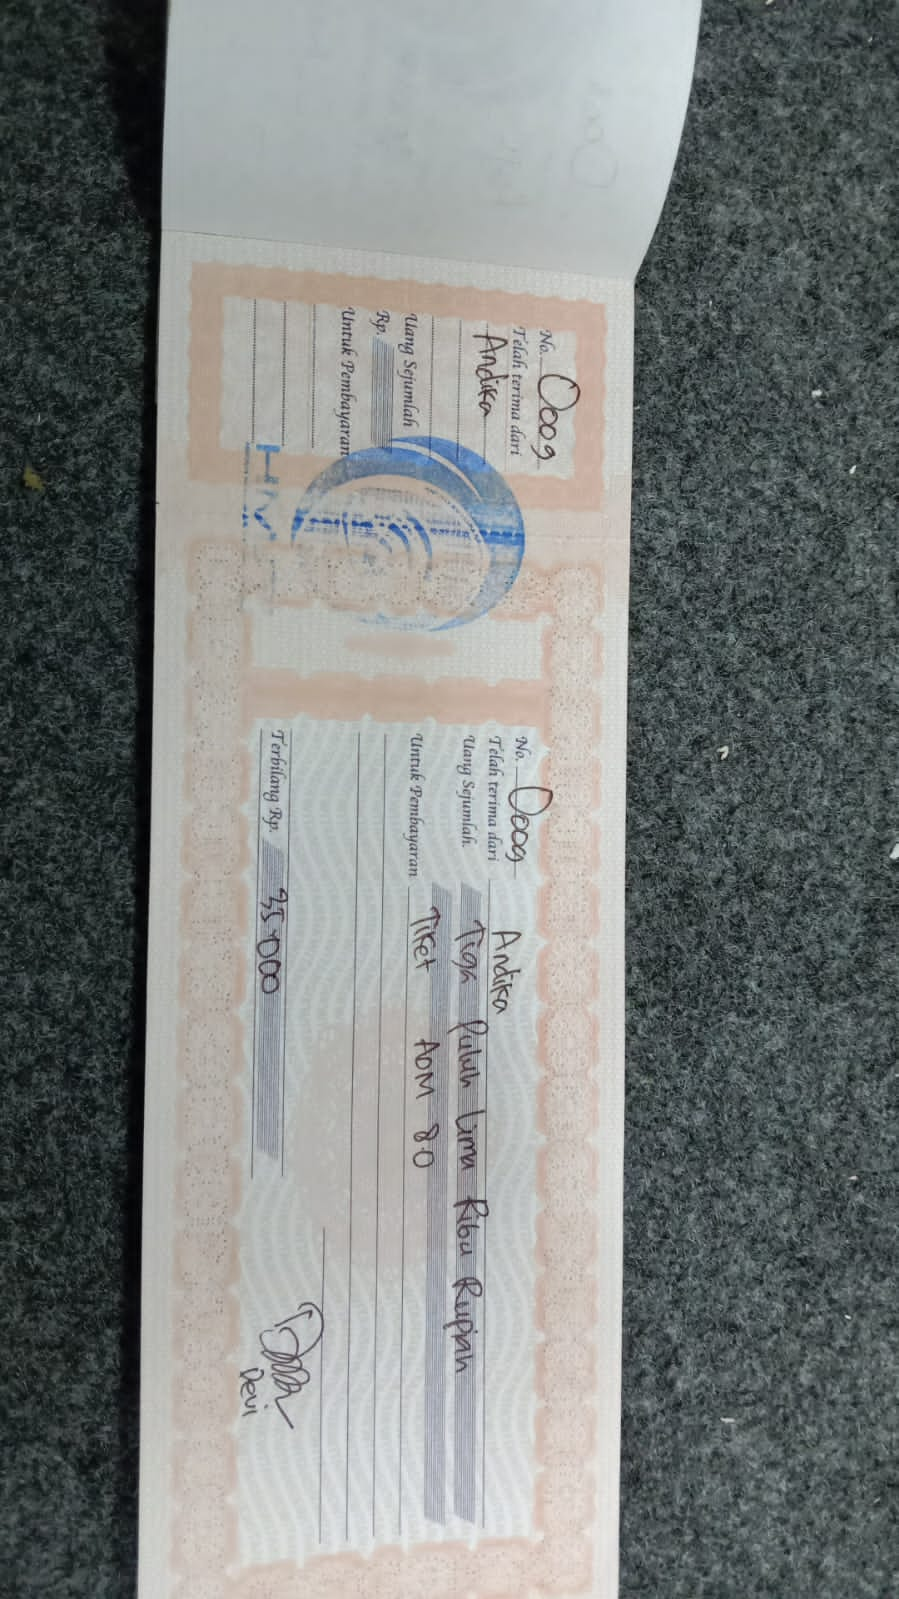 No. 0009
Telah terima dari
Andika
Uang Sejumlah
Rp.
Untuk Pembayaran
No. 0009
Telah terima dari Andika
Uang Sejumlah Tiga Puluh Lima Ribu Rupiah
Untuk Pembayaran Tiket AOM 8.0
Terbilang Rp. 35.000
Devi